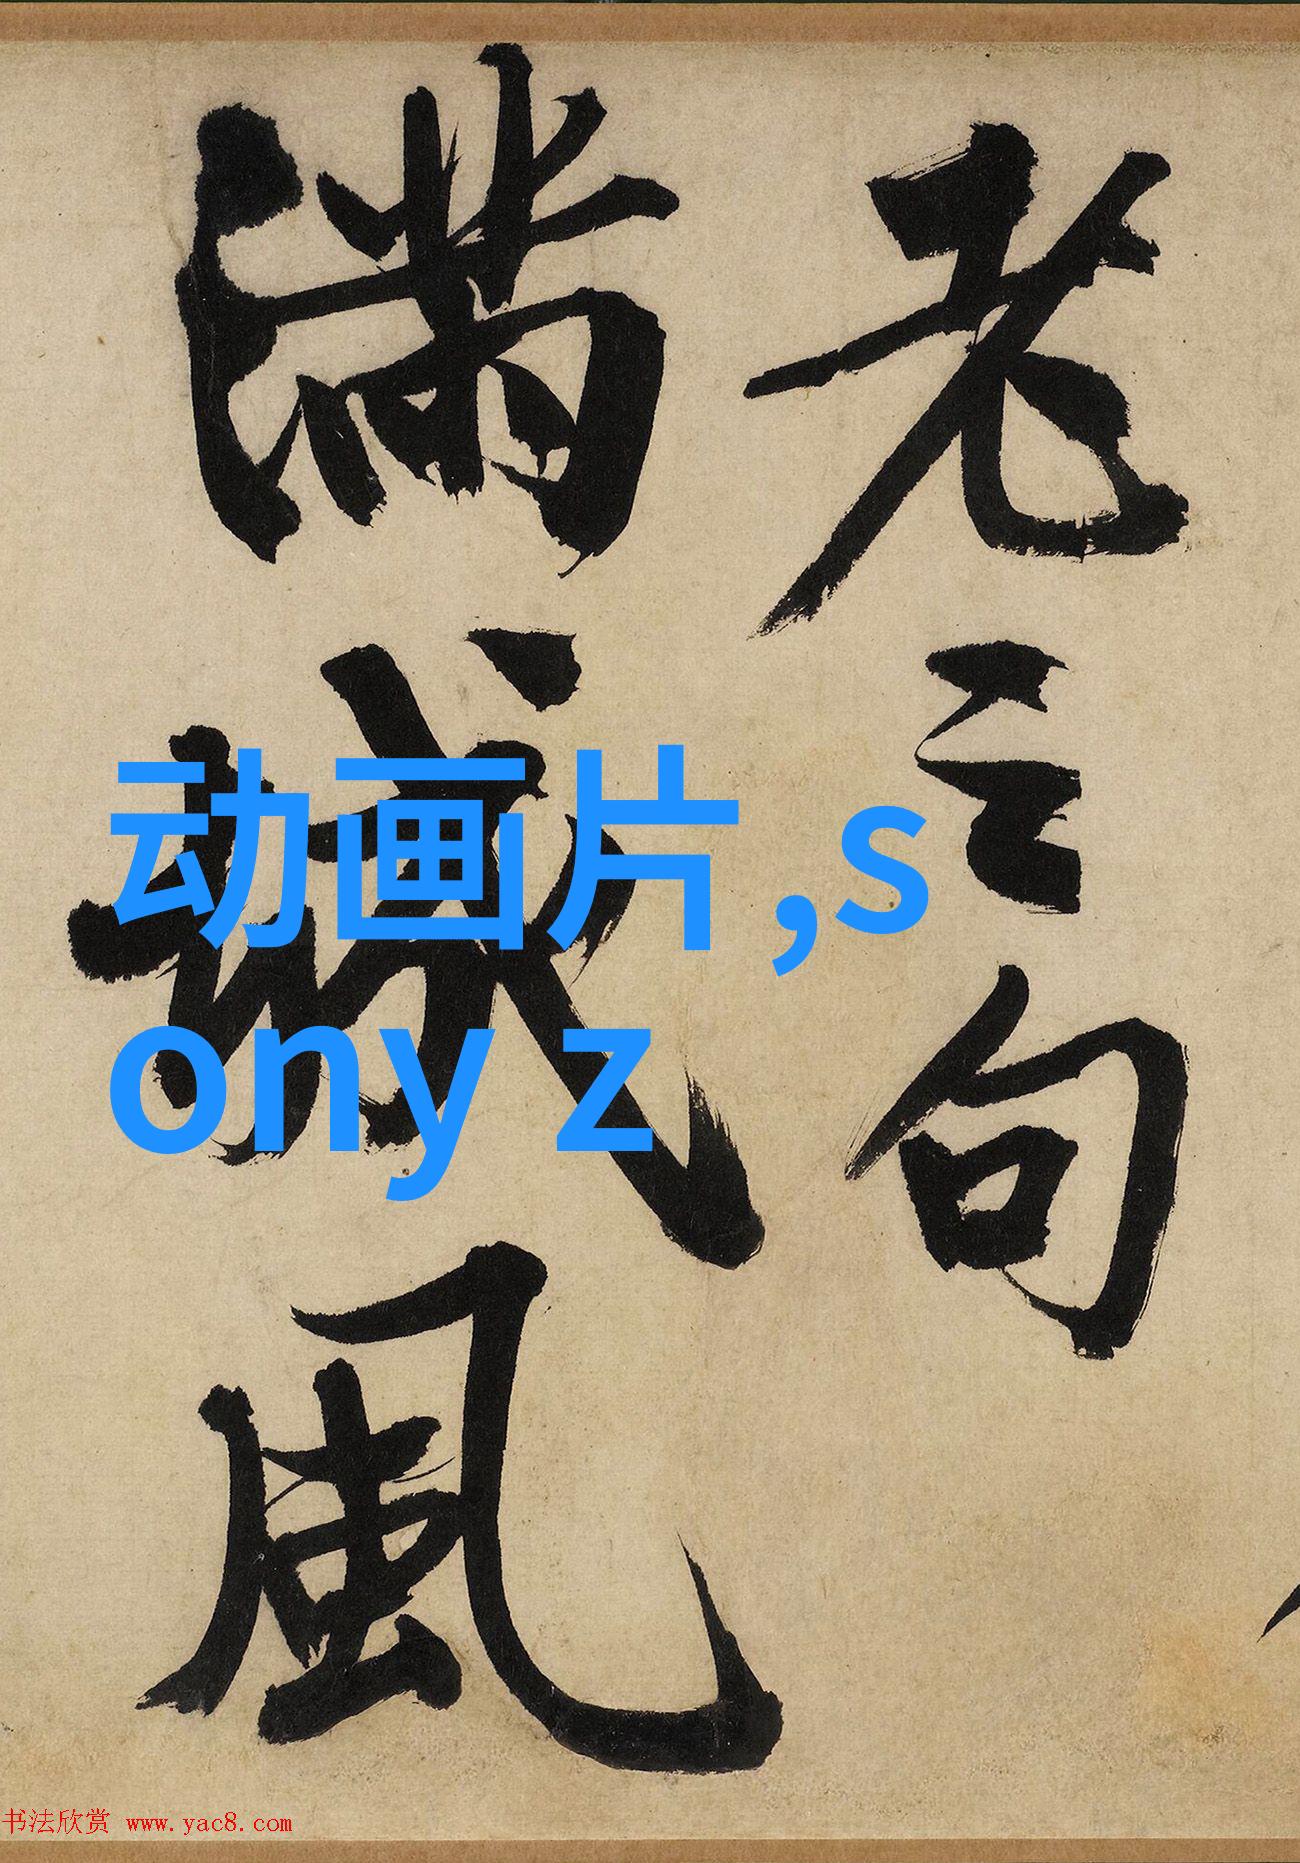 老之句
滿城風
动画片,s
ony z
书法欣赏 www.yac8.com